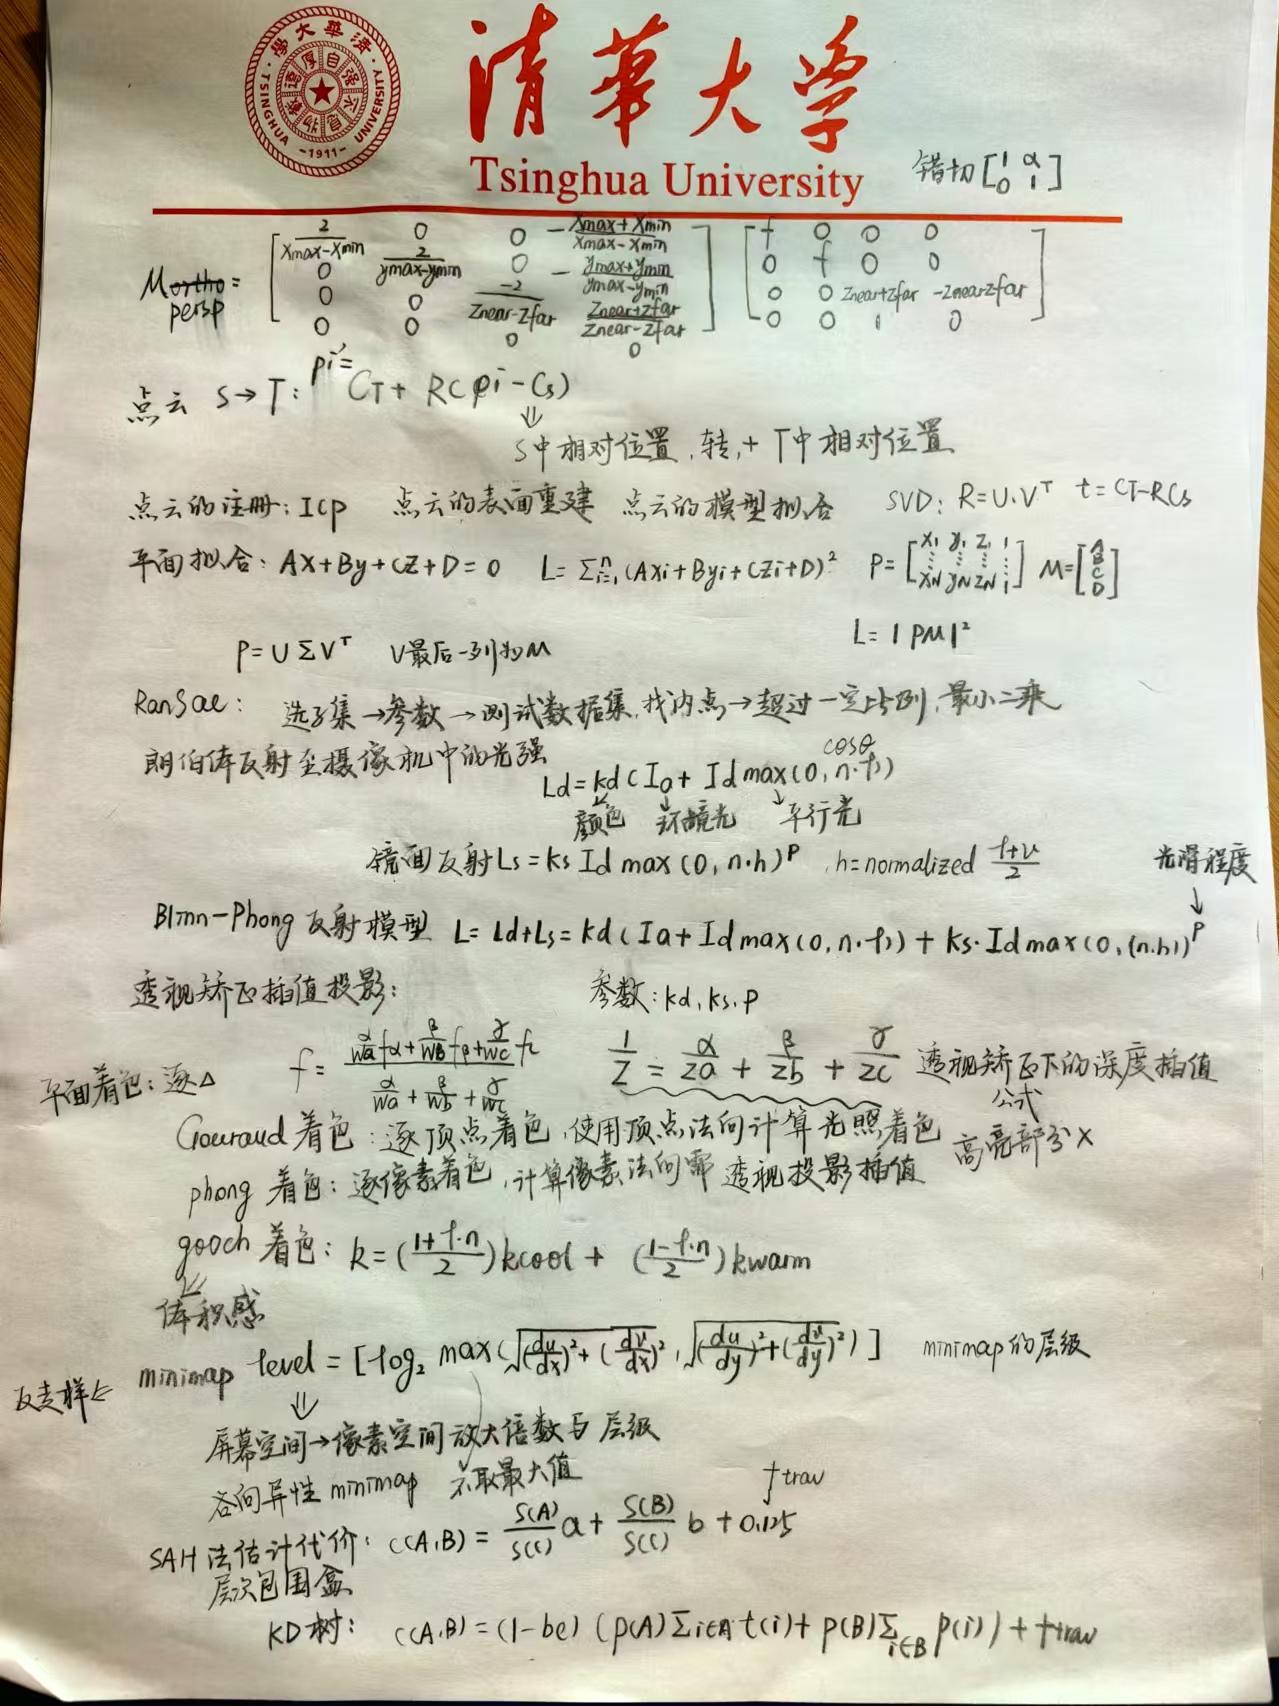 清華大学
TSINGHUA UNIVERSITY
自强不息 厚德載物
-1911-
Tsinghua University
错切 [1 α; 0 1]
Mortho persp = [2/(Xmax-Xmin) 0 0 -(Xmax+Xmin)/(Xmax-Xmin); 0 2/(ymax-ymin) 0 -(ymax+ymin)/(ymax-ymin); 0 0 -2/(Znear-Zfar) (Znear+Zfar)/(Znear-Zfar); 0 0 0 0] [f 0 0 0; 0 f 0 0; 0 0 Znear+Zfar -ZnearZfar; 0 0 1 0]
点云 S→T: pi'= CT + R(pi-Cs)
⇓
S中相对位置,转,+ T中相对位置
点云的注册: ICP 点云的表面重建 点云的模型拟合 SVD: R=U·V^T t=CT-RCs
平面拟合: Ax+By+Cz+D=0 L=Σ_{i=1}^{n}(Axi+Byi+Czi+D)² P=[x1 y1 z1 1; ⋮ ⋮ ⋮ ⋮; xN yN zN 1] M=[A B C D]
L=|PM|²
P=UΣV^T V最后一列为M
RanSac: 选子集→参数→测试数据集,找内点→超过一定比例,最小二乘
朗伯体反射至摄像机中的光强
Ld=kd(Ia+Id max(0, n·l)) cosθ
颜色 环境光 平行光
镜面反射Ls=ks Id max(0, n·h)^p , h=normalized (l+v)/2 光滑程度
Blinn-Phong 反射模型 L=Ld+Ls=kd(Ia+Id max(0, n·l))+ks·Id max(0,(n·h))^p
透视矫正插值投影: 参数:kd,ks,p
平面着色:逐△ f=(α/wa fα+β/wB fβ+γ/wc fc)/(α/wa+β/wb+γ/wc) 1/Z=α/Za+β/Zb+γ/Zc 透视矫正下的深度插值公式
Gouraud 着色:逐顶点着色,使用顶点法向计算光照着色 高亮部分×
phong 着色:逐像素着色,计算像素法向需 透视投影插值
gooch 着色: k=((1+l·n)/2)kcool + ((1-l·n)/2)kwarm
体积感
minimap level=[log₂ max(√((du/dx)²+(dv/dx)²), √((du/dy)²+(dv/dy)²))] minimap的层级
反走样⇐
⇓
屏幕空间→像素空间放大倍数与层级
各向异性 minimap 不取最大值
SAH法估计代价: C(A,B)=S(A)/S(C) a+S(B)/S(C) b+0.125 ttrav
层次包围盒
KD树: C(A,B)=(1-be)(p(A)Σi∈A t(i)+p(B)Σi∈B p(i))+ttrav